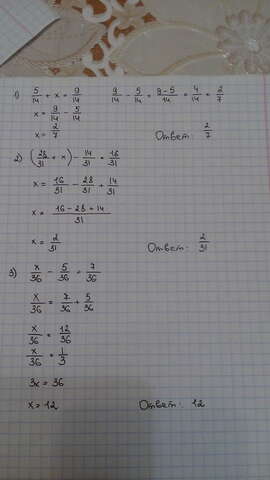 1) 5/14 + x = 9/14    9/14 - 5/14 = 9-5/14 = 4/14 = 2/7
x = 9/14 - 5/14
x = 2/7    Ответ: 2/7
2) (28/31 + x) - 14/31 = 16/31
x = 16/31 - 28/31 + 14/31
x = 16-28+14/31
x = 2/31    Ответ: 2/31
3) x/36 - 5/36 = 7/36
x/36 = 7/36 + 5/36
x/36 = 12/36
x/36 = 1/3
3x = 36
x = 12    Ответ: 12